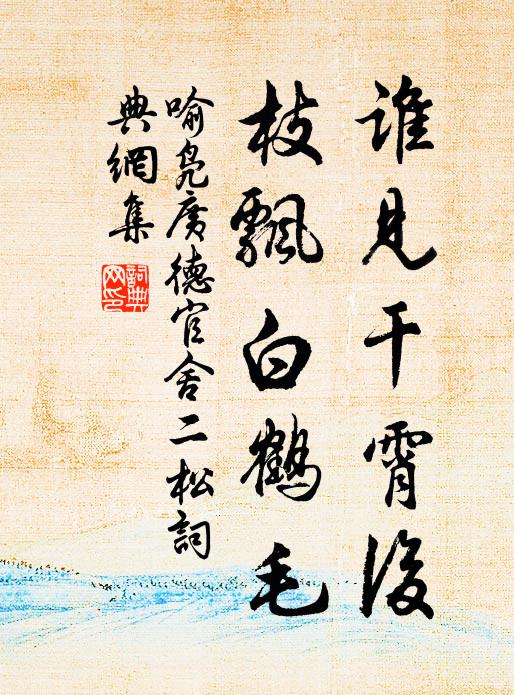 誰見干霄後
枝飄白鶴毛
喻鳧廣德官舍二松詞
典網集
詞典
网印